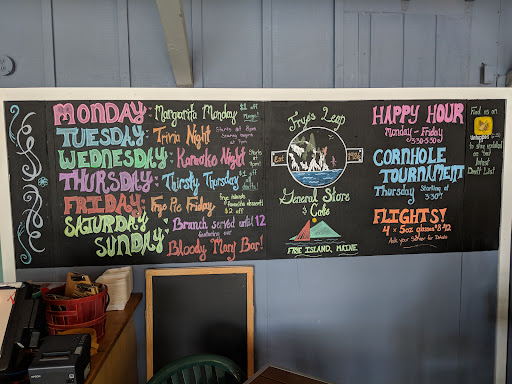 MONDAY: Margarita Monday $1 off
TUESDAY: Trivia Night Starts at 8pm
WEDNESDAY: Karaoke Night Starts
THURSDAY: Thirsty Thursday $1 off
FRIDAY: Frye Pie Friday
$2 off
SATURDAY
SUNDAY: Brunch served until 12
featuring our
Bloody Mary Bar!
Frye's Leap
Est.
General Store
& Cafe
FRYE ISLAND, MAINE
HAPPY HOUR
Monday - Friday
3:30-5:30
CORNHOLE
TOURNAMENT
Thursday Starting at
5:30
FLIGHTS!
4 x 5oz glasses
Ask your Server for Details
Find us on
Untappd
to stay
updated
on our
latest
Draft List!